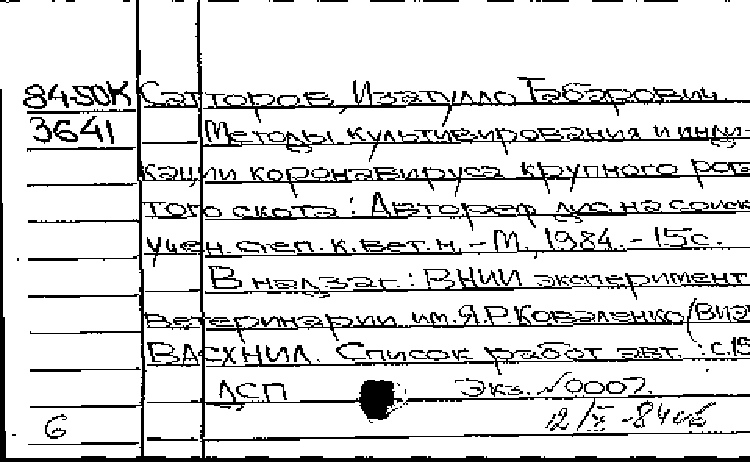 84-50К Сатторов, Изатулло Габарович
3641 Методы культивирования и инди-
кации коронавируса крупного рога
того скота: Автореф. дис. на соиск
учен. степ. к. вет. н. - М, 1984. - 15 с.
В надзаг.: ВНИИ эксперимент
ветеринарии им. Я.Р. Коваленко (ВИЭ
ВАСХНИЛ. Список работ авт.: с. 15
ДСП Экз. №0002
6 12/X-84